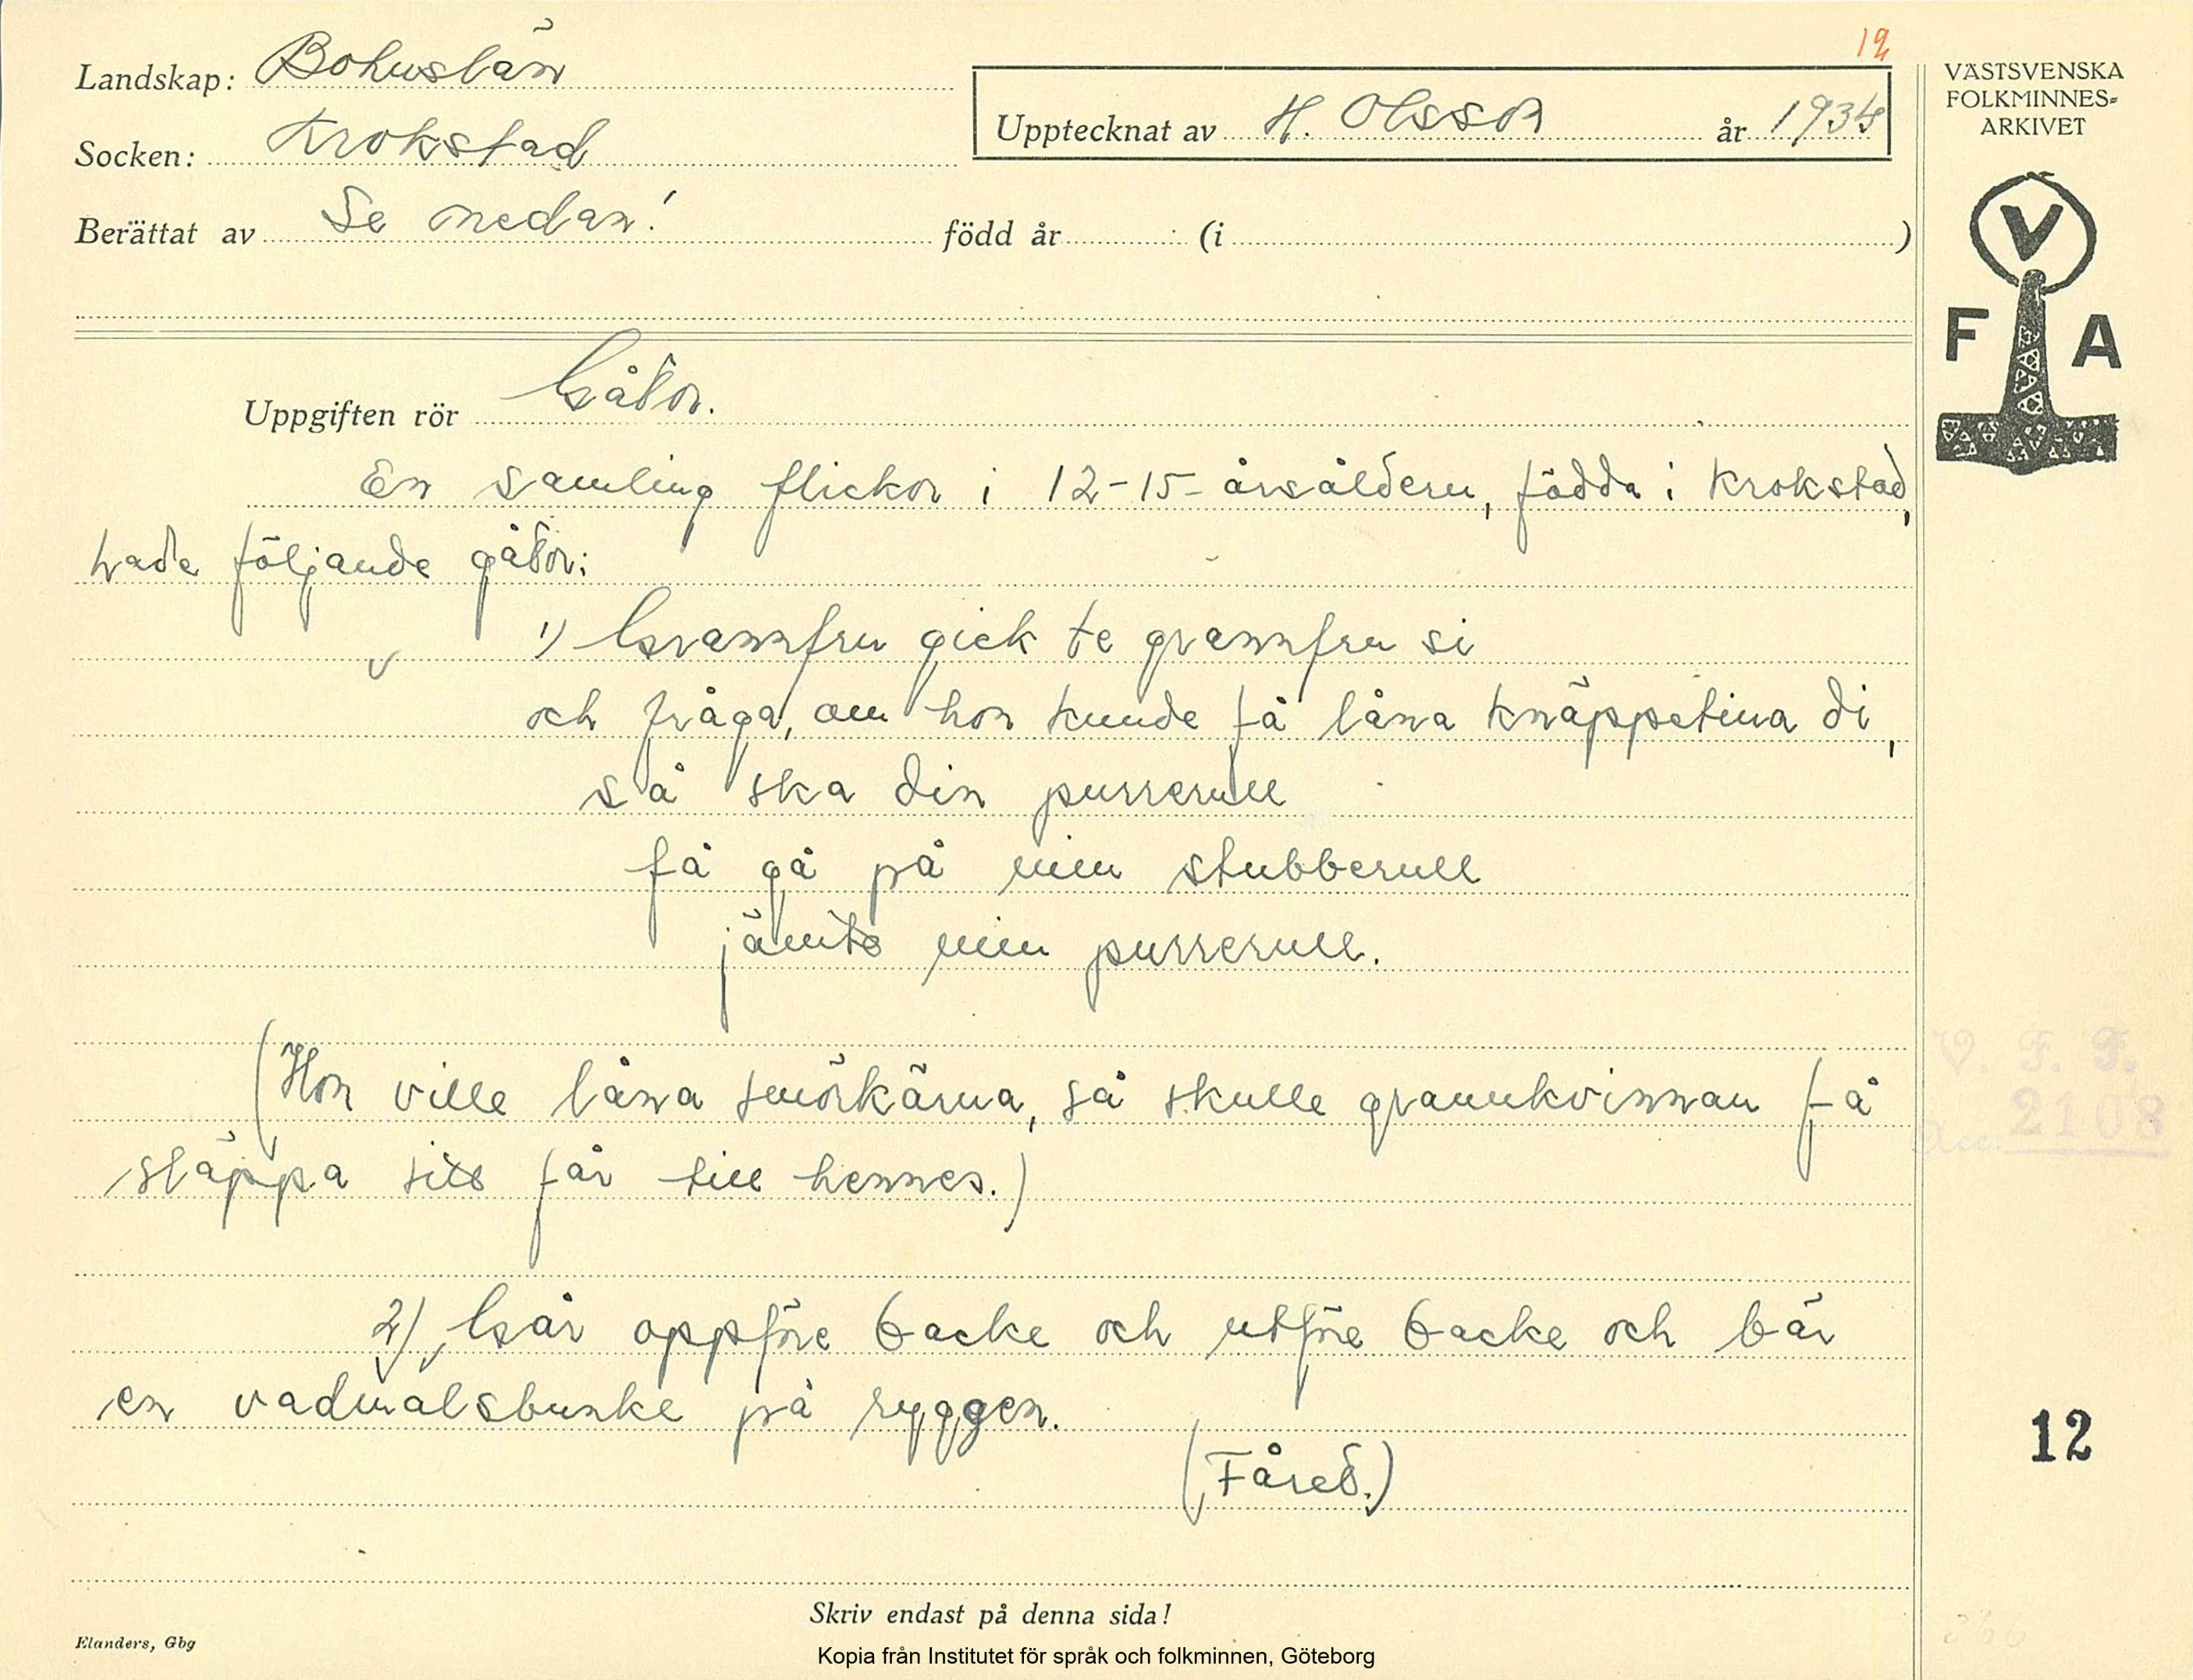 12
Landskap: Bohuslän
Socken: Krokstad
Upptecknat av H. Olsson år 1934
Berättat av Se nedan! född år (i )
VÄSTSVENSKA
FOLKMINNES-
ARKIVET
V
F A
Uppgiften rör Gåtor.
En samling flickor i 12-15-årsåldern, födda i Krokstad,
hade följande gåtor:
1) Grannfru gick te grannfru si
och fråga, om hon kunde få låna knäppetina di,
så ska din purrerull
få gå på min stubberull
jämte min purrerull.
(Hon ville låna smörkärna, så skulle grannkvinnan få
släppa sitt får till hennes.)
2) Går oppföre backe och utföre backe och bär
en vadmalsbunke på ryggen.
(Fåret.)
V. F. F.
Acc: 2108
12
366
Skriv endast på denna sida!
Elanders, Gbg
Kopia från Institutet för språk och folkminnen, Göteborg